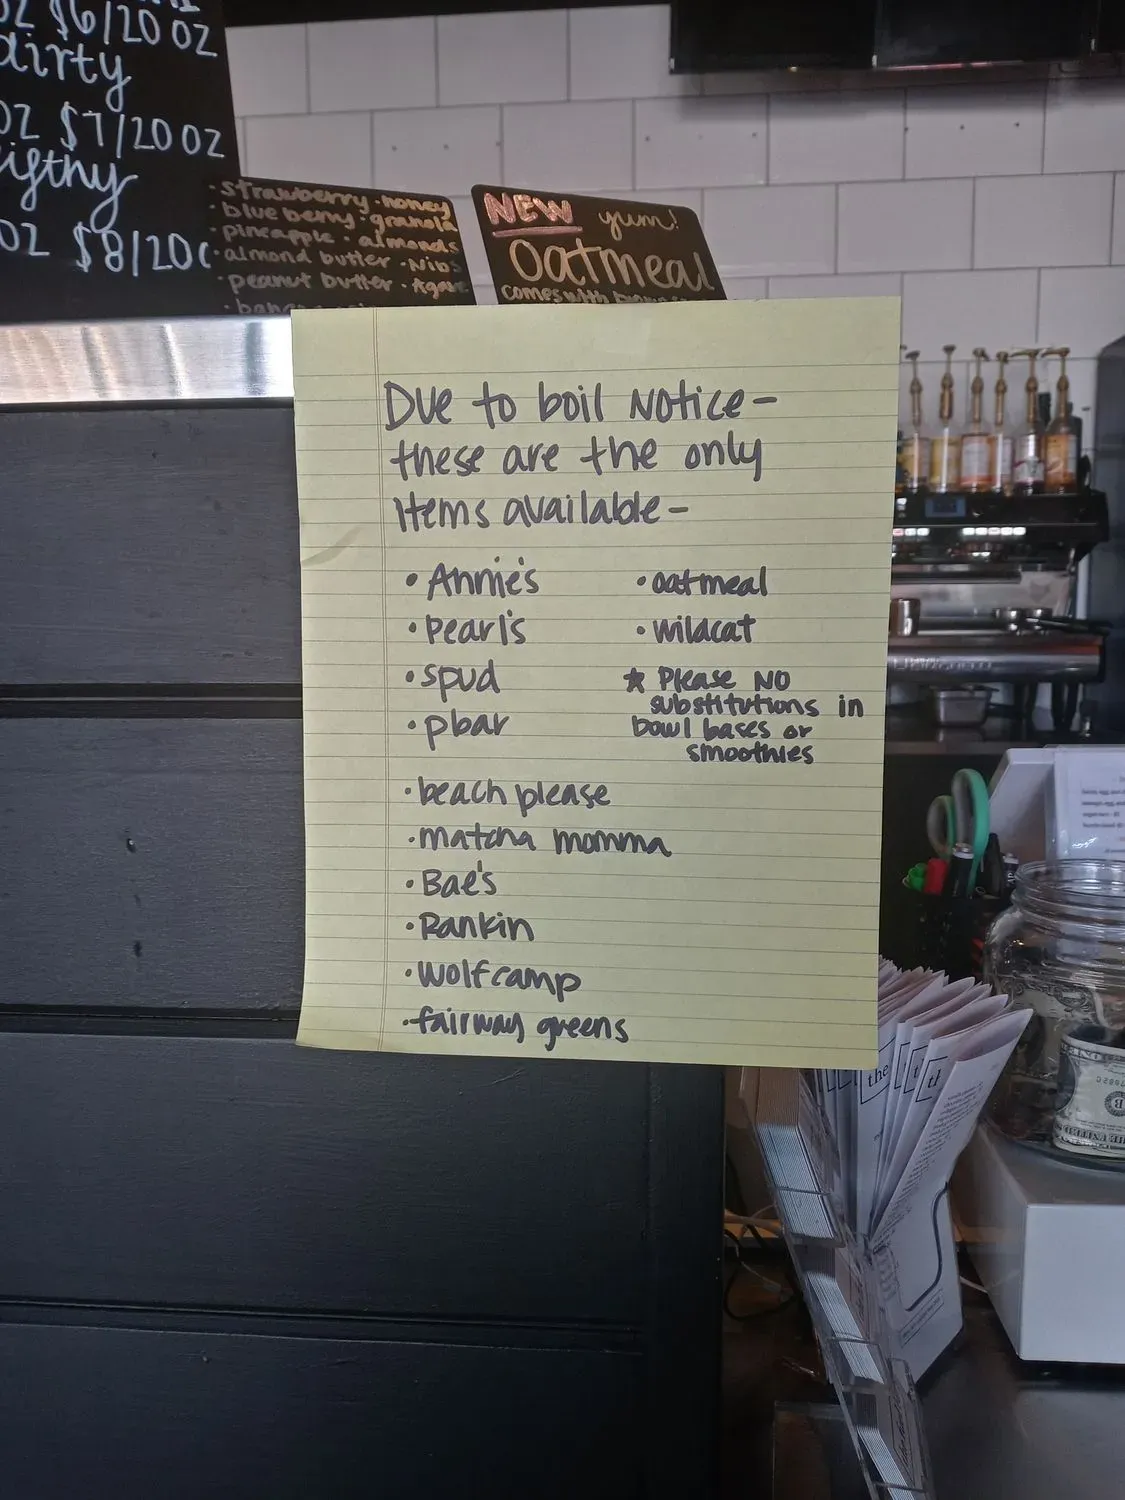 OZ $6/20 OZ
dirty
OZ $7/20 OZ
OZ $8/20
• strawberry • honey
• blueberry • granola
• pineapple • almonds
• almond butter • Nibs
• peanut butter • Agave
NEW yum!
Oatmeal
comes with
Due to boil Notice-
these are the only
items available-
• Annie's
• pearl's
• spud
• pbar
• beach please
• matcha momma
• Bae's
• Rankin
• wolfcamp
• fairway greens
• oatmeal
• wildcat
☆ Please NO
substitutions in
bowl bases or
smoothies
the